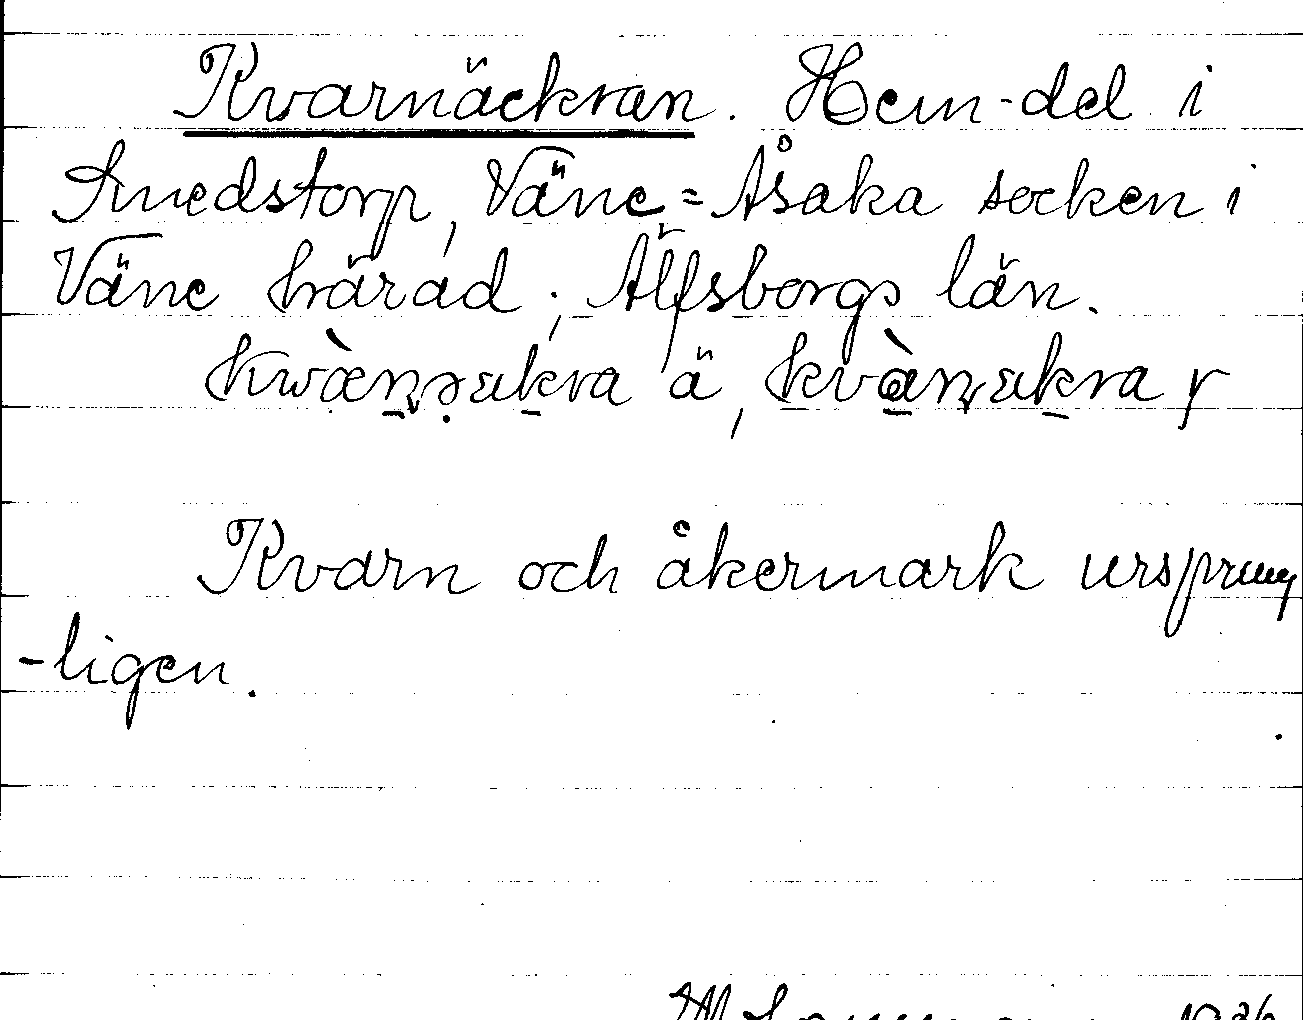 Kvarnäckran. Hem-del i
Smedstorp, Väne=Åsaka socken i
Väne härad; Älfsborgs län.
ä,
Kvarn och åkermark ursprung
-ligen.